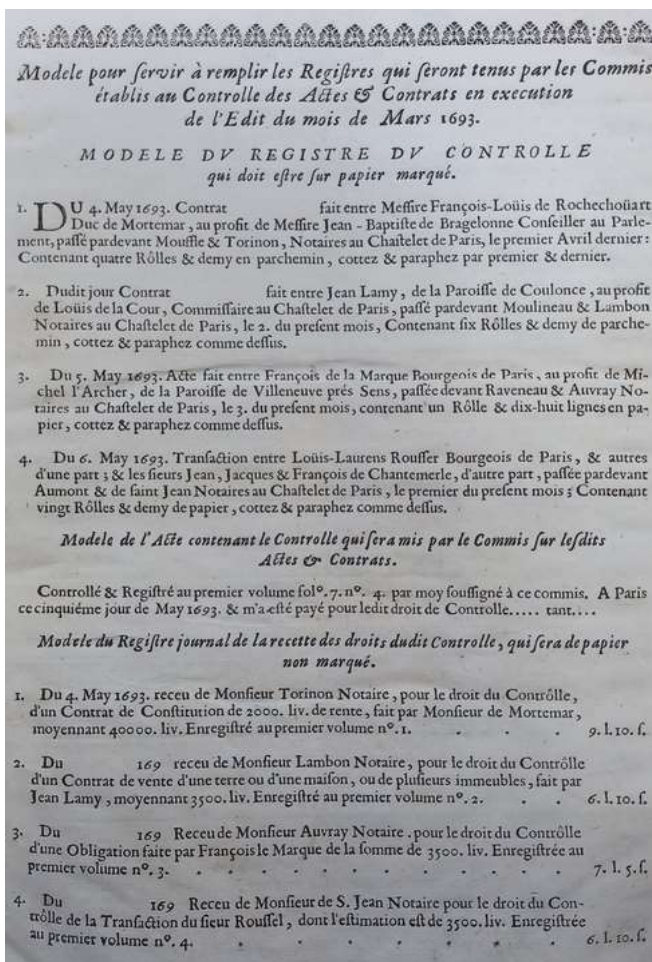 Modele pour ſervir à remplir les Regiſtres qui ſeront tenus par les Commis
établis au Controlle des Actes & Contrats en execution
de l'Edit du mois de Mars 1693.
MODELE DV REGISTRE DV CONTROLLE
qui doit eſtre ſur papier marqué.
1. DU 4. May 1693. Contrat fait entre Meſſire François-Loüis de Rochechoüart
Duc de Mortemar, au profit de Meſſire Jean-Baptiſte de Bragelonne Conſeiller au Parle-
ment, paſſé pardevant Mouffle & Torinon, Notaires au Chaſtelet de Paris, le premier Avril dernier:
Contenant quatre Rôlles & demy en parchemin, cottez & paraphez par premier & dernier.
2. Dudit jour Contrat fait entre Jean Lamy, de la Paroiſſe de Coulonce, au profit
de Loüis de la Cour, Commiſſaire au Chaſtelet de Paris, paſſé pardevant Moulineau & Lambon
Notaires au Chaſtelet de Paris, le 2. du preſent mois, Contenant ſix Rôlles & demy de parche-
min, cottez & paraphez comme deſſus.
3. Du 5. May 1693. Acte fait entre François de la Marque Bourgeois de Paris, au profit de Mi-
chel l'Archer, de la Paroiſſe de Villeneuve prés Sens, paſſée devant Raveneau & Auvray No-
taires au Chaſtelet de Paris, le 3. du preſent mois, contenant un Rôlle & dix-huit lignes en pa-
pier, cottez & paraphez comme deſſus.
4. Du 6. May 1693. Tranſaction entre Loüis-Laurens Rouſſer Bourgeois de Paris, & autres
d'une part; & les ſieurs Jean, Jacques & François de Chantemerle, d'autre part, paſſée pardevant
Aumont & de ſaint Jean Notaires au Chaſtelet de Paris, le premier du preſent mois; Contenant
vingt Rôlles & demy de papier, cottez & paraphez comme deſſus.
Modele de l'Acte contenant le Controlle qui ſera mis par le Commis ſur leſdits
Actes & Contrats.
Controllé & Regiſtré au premier volume folº. 7. nº. 4. par moy ſouſſigné à ce commis. A Paris
ce cinquiéme jour de May 1693. & m'a eſté payé pour ledit droit de Controlle..... tant....
Modele du Regiſtre journal de la recette des droits dudit Controlle, qui ſera de papier
non marqué.
1. Du 4. May 1693. receu de Monſieur Torinon Notaire, pour le droit du Contrôlle,
d'un Contrat de Conſtitution de 2000. liv. de rente, fait par Monſieur de Mortemar,
moyennant 40000. liv. Enregiſtré au premier volume nº. 1. . . . 9. l. 10. ſ.
2. Du 169 receu de Monſieur Lambon Notaire, pour le droit du Contrôlle
d'un Contrat de vente d'une terre ou d'une maiſon, ou de pluſieurs immeubles, fait par
Jean Lamy, moyennant 3500. liv. Enregiſtré au premier volume nº. 2. . . 6. l. 10. ſ.
3. Du 169 Receu de Monſieur Auvray Notaire. pour le droit du Contrôlle
d'une Obligation faite par François le Marque de la ſomme de 3500. liv. Enregiſtrée au
premier volume nº. 3. . . . . . . . . 7. l. 5. ſ.
4. Du 169 Receu de Monſieur de S. Jean Notaire pour le droit du Con-
trôlle de la Tranſaction du ſieur Rouſſel, dont l'eſtimation eſt de 3500. liv. Enregiſtrée
au premier volume nº. 4. . . . . . . . 6. l. 10. ſ.